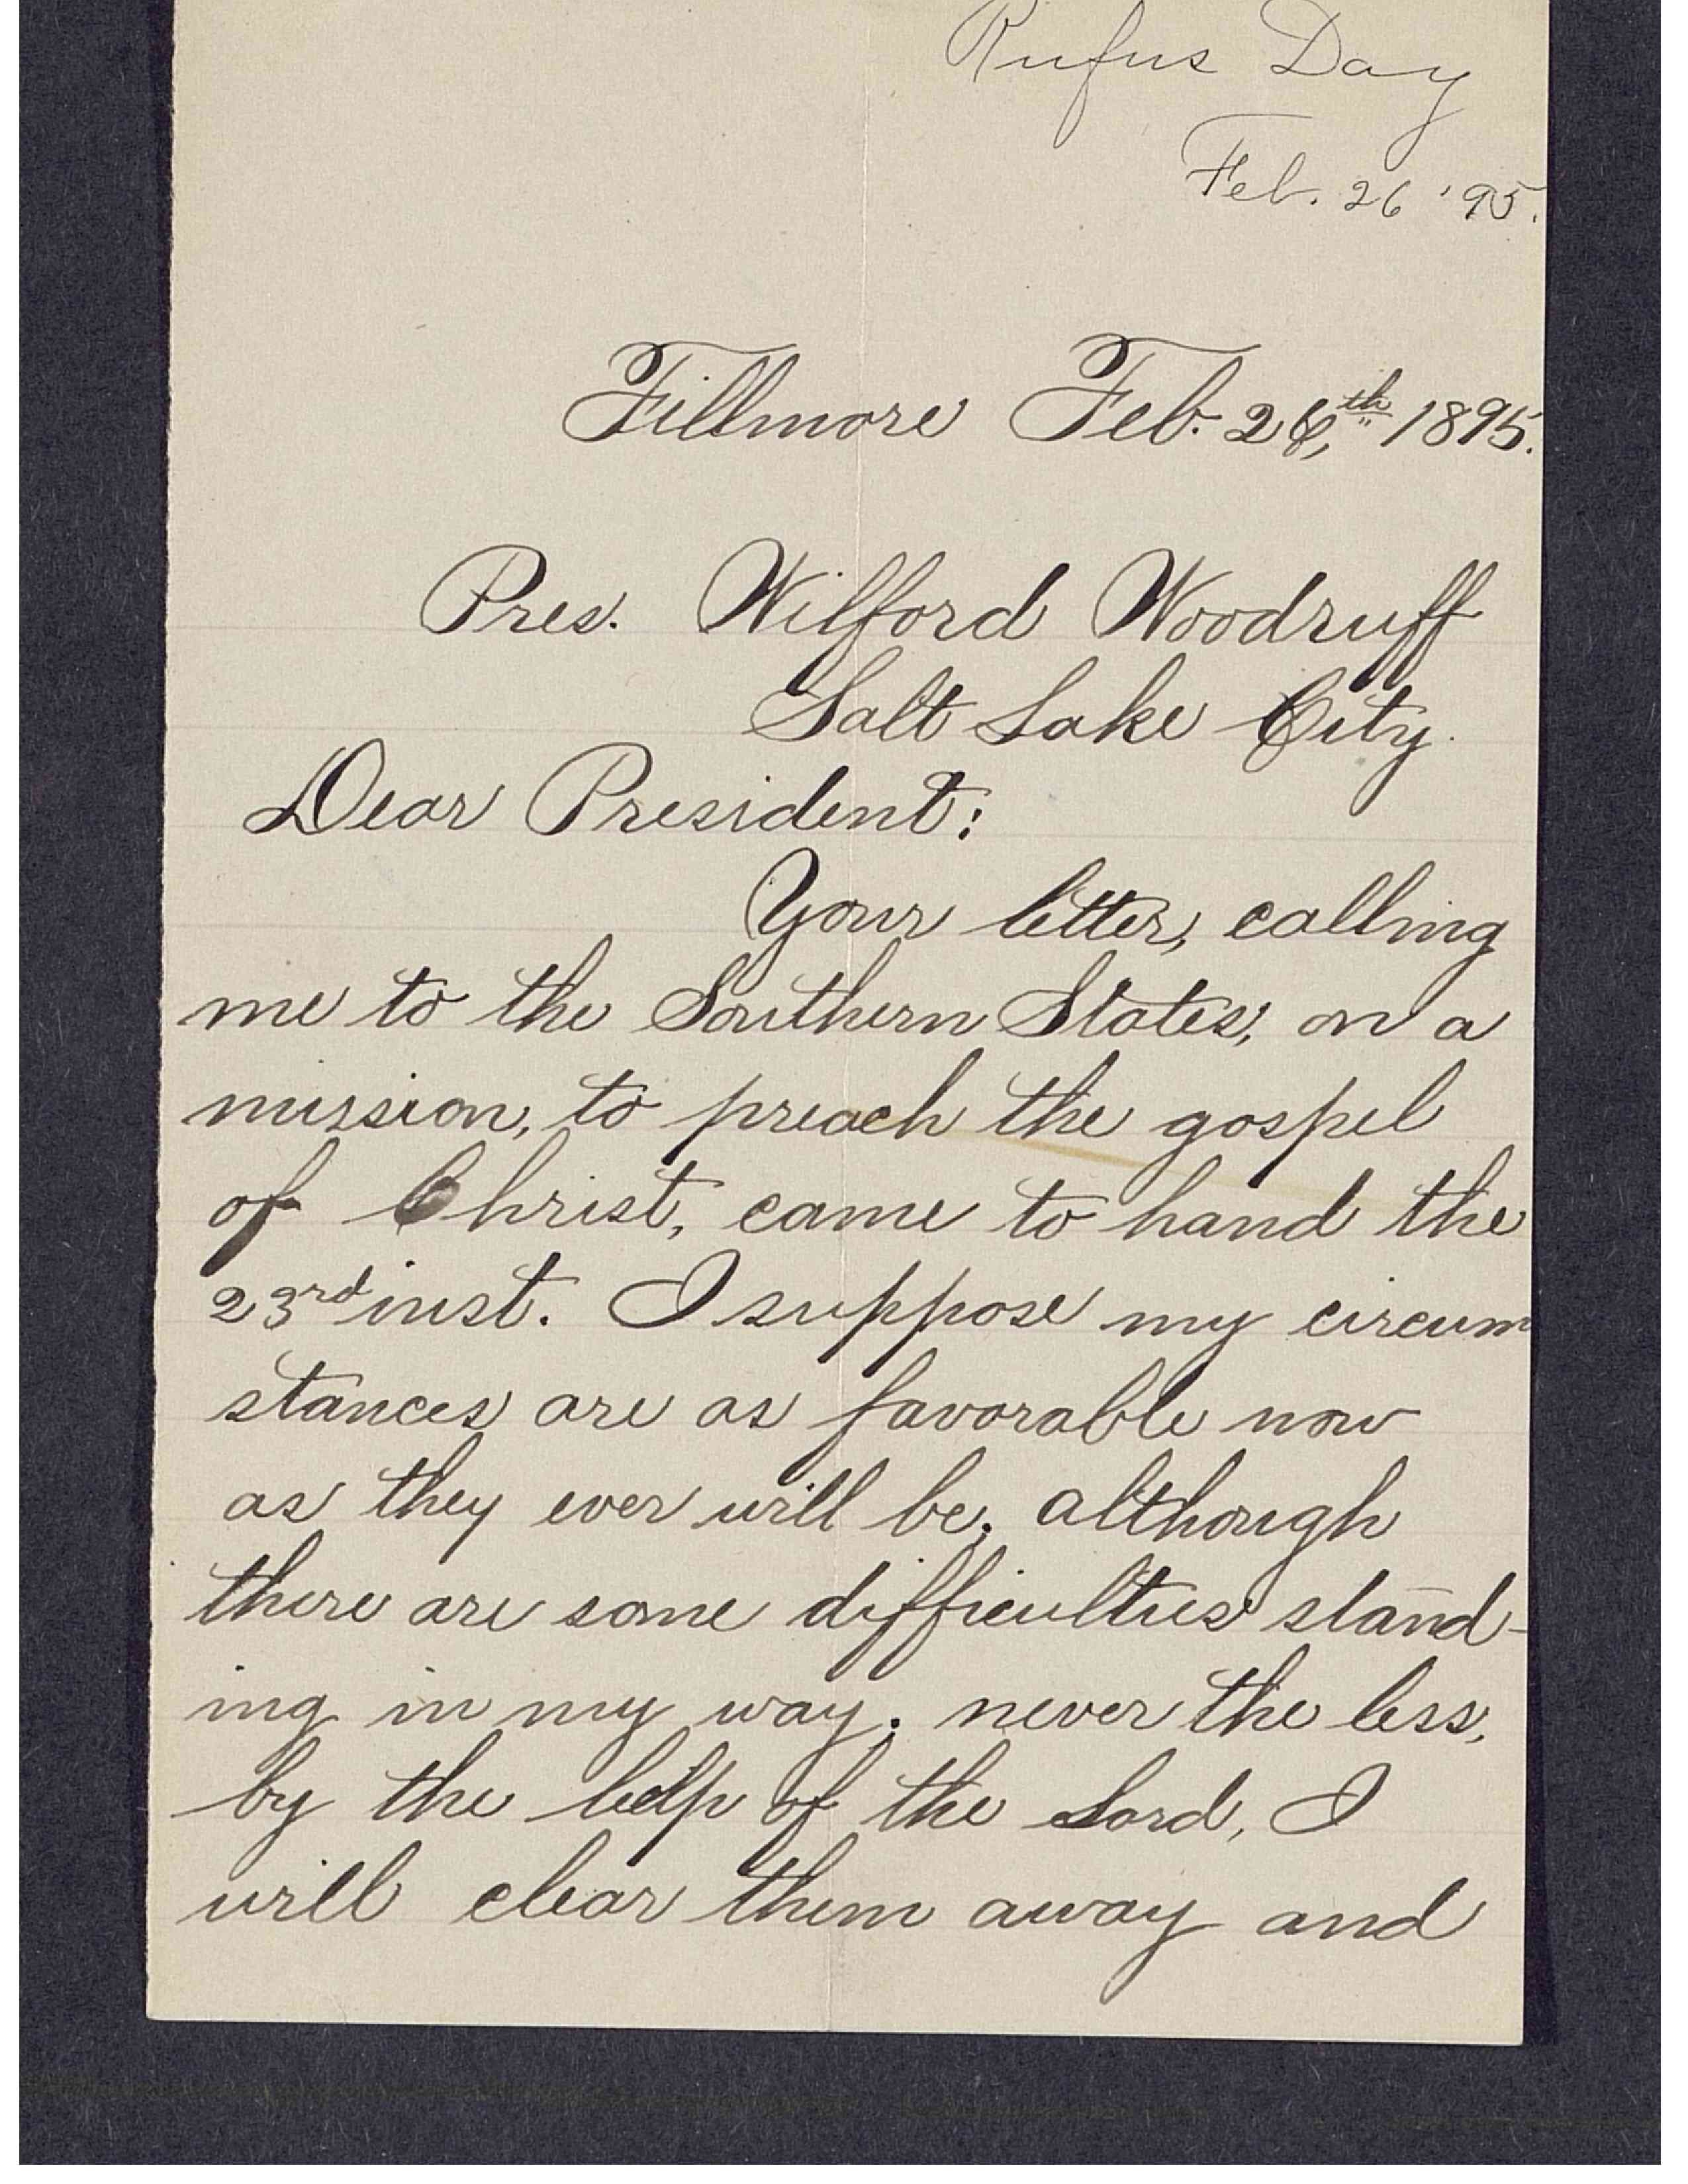 Rufus Day
Feb. 26 '95.
Fillmore Feb. 26,th 1895.
Pres. Wilford Woodruff
Salt Lake City.
Dear President:
Your letter, calling
me to the Southern States, on a
mission, to preach the gospel
of Christ, came to hand the
23rd inst. I suppose my circum
stances are as favorable now
as they ever will be; although
there are some difficulties stand-
ing in my way; never the less,
by the help of the Lord, I
will clear them away and